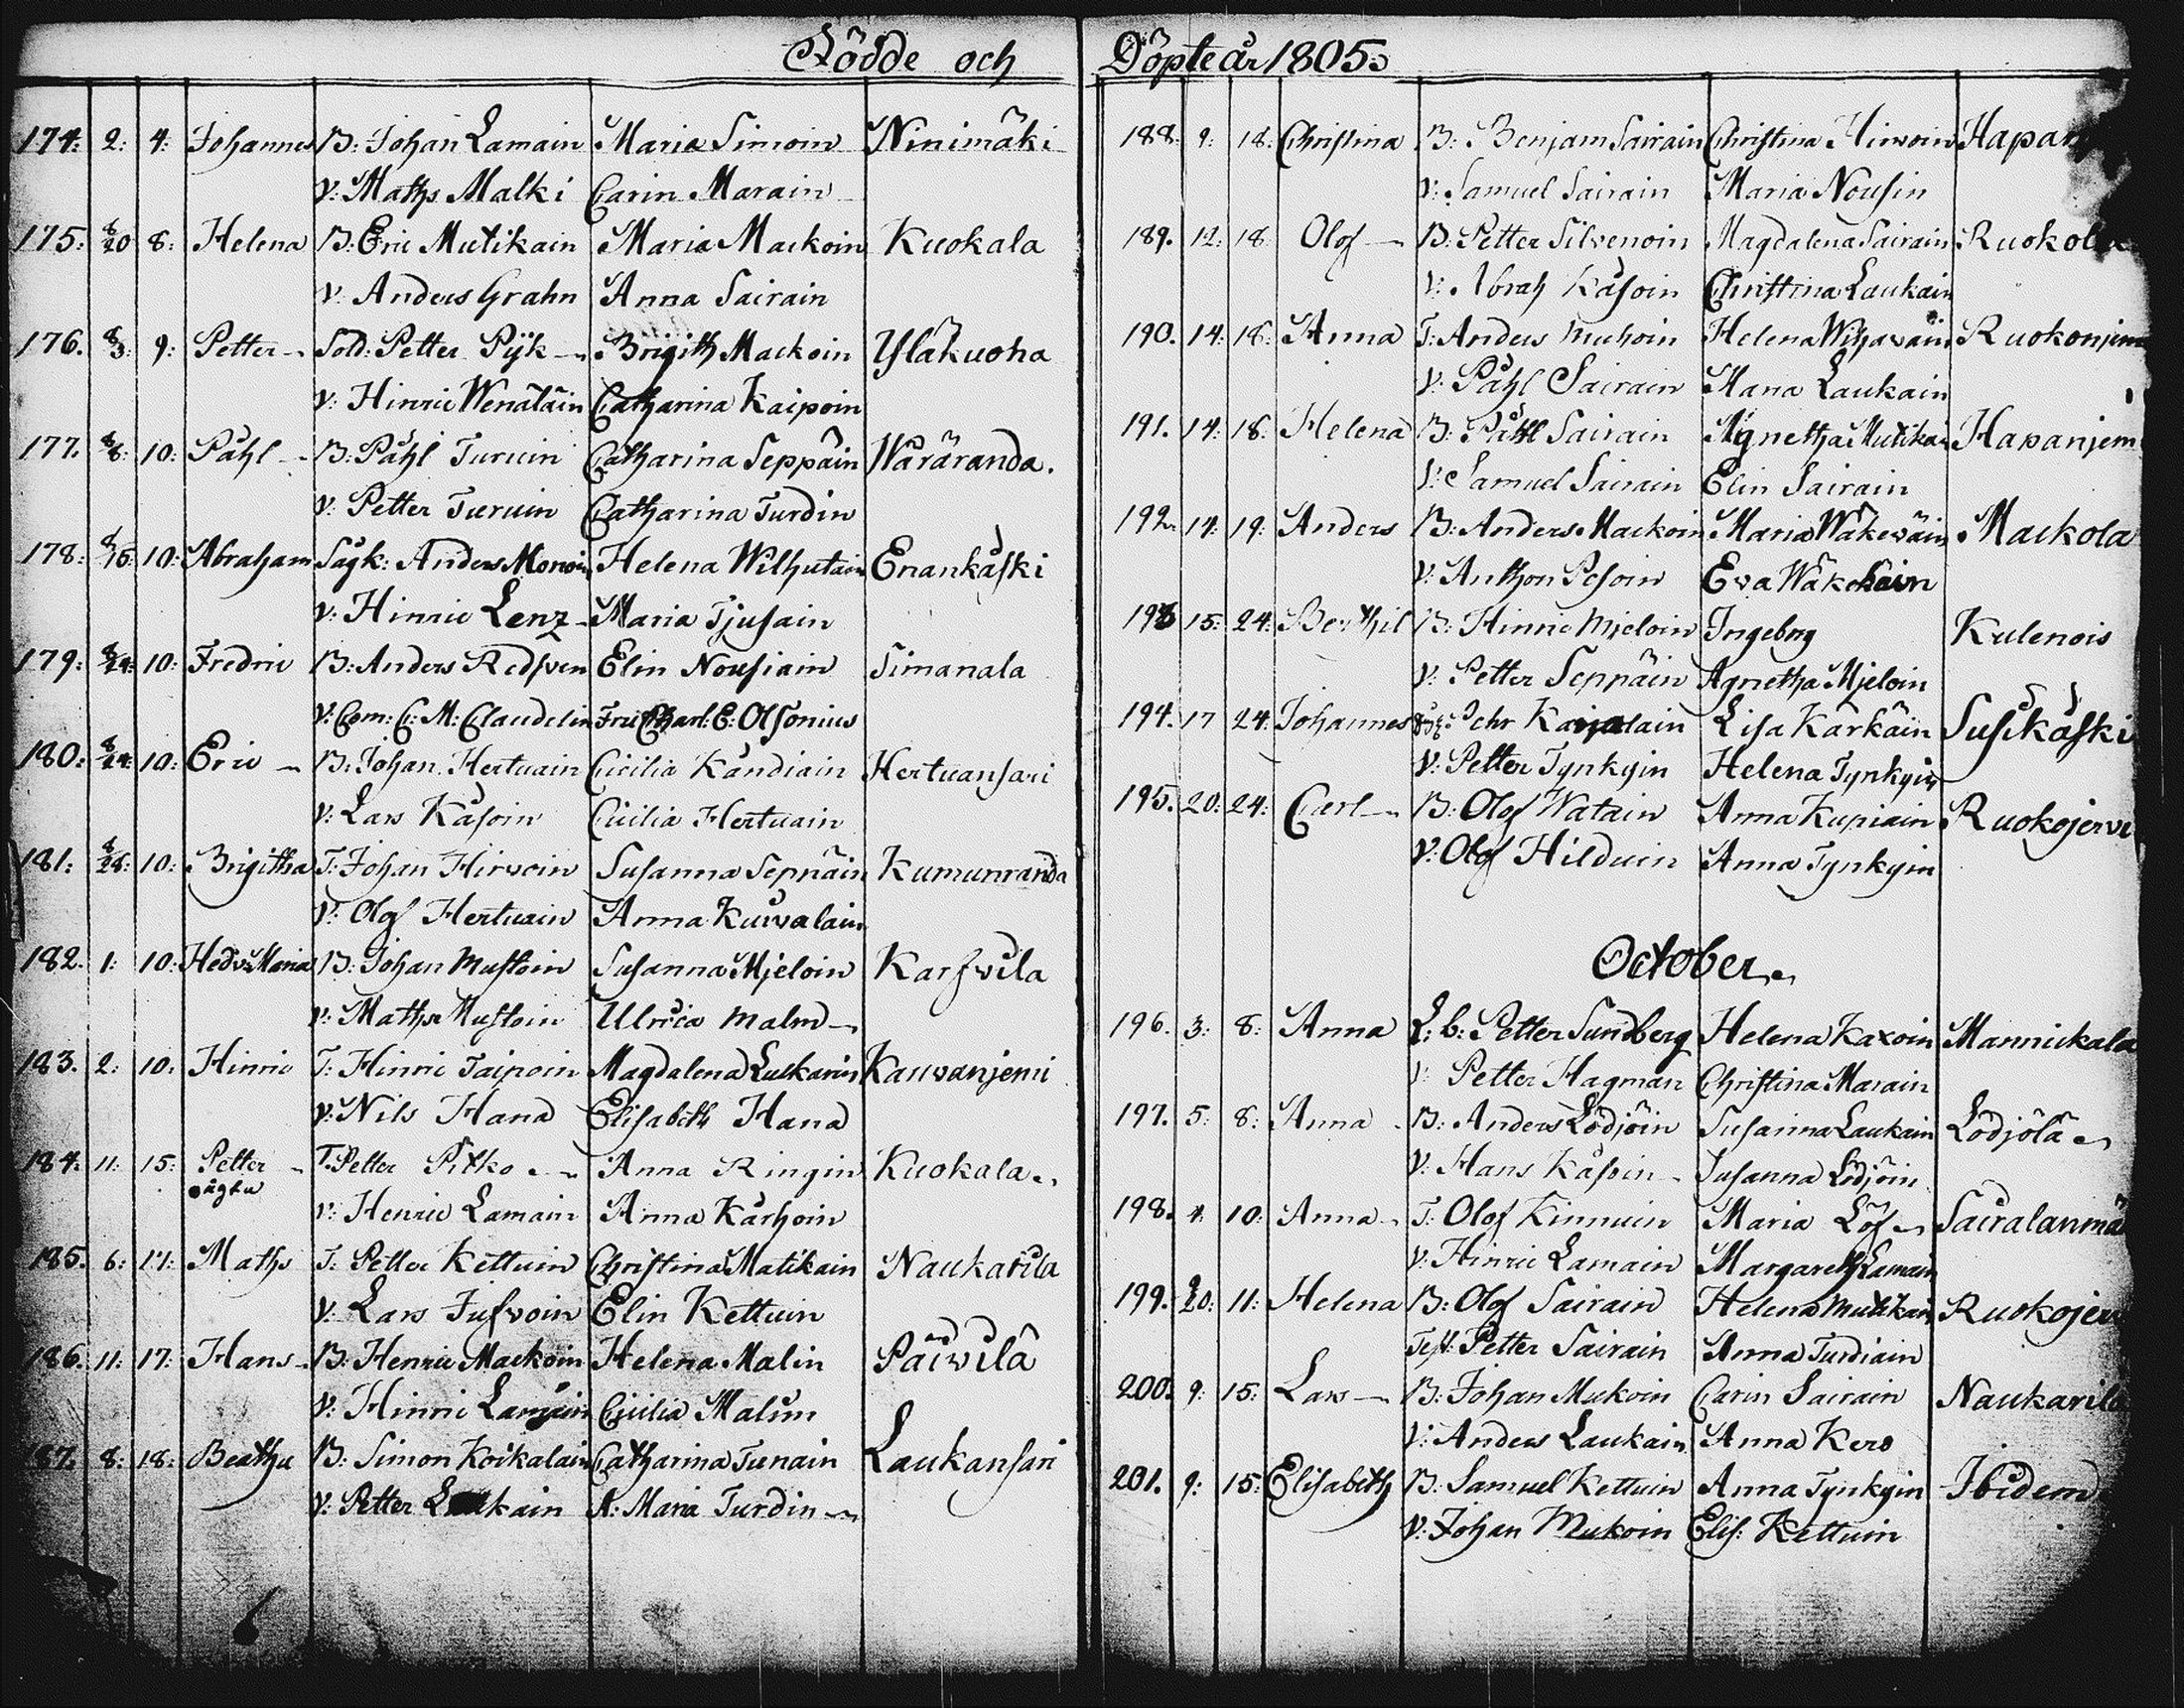 Födde och
174. 2: 4: Johannes B: Johan Lamain Maria Simoin Ninimäki
V: Maths Malki Carin Marain
175: 8/20 8: Helena B: Eric Mutikain Maria Mackoin Kuokala
V: Anders Grahn Anna Sairain
176. 8/3: 9: Petter Sold: Petter Pÿk Brigith Mackoin Yläkuoha
V: Hinric Wenäläin Catharina Kaipoin
177. 8/8: 10: Påhl B: Påhl Turuin Catharina Seppäin Wäräranda.
V: Petter Turuin Catharina Turdin
178: 8/15: 10: Abraham Sågk: Anders Monoin Helena Wilhutain Enankåski
V: Hinric Lenz Maria Tjusain
179: 8/24: 10: Fredric B: Anders Redsven Elin Nousiain Simanala
V: Com: C: M: Claudelin Fru Charl: E: Olsonius
180: 8/24: 10: Eric B: Johan Hertuain Cicilia Kändiain Hertuansari
V: Lars Kåsoin Cicilia Hertuain
181: 8/28: 10: Brigitha T: Johan Hirvoin Susanna Seppäin Kumunranda
V: Olof Hertuain Anna Kurvalain
182. 1: 10: Hedv: Maria B: Johan Mustoin Susanna Mjeloin Karsvila
V: Maths Mustoin Ulrica Malm
183. 2: 10: Hinric T: Hinric Taipoin Magdalena Luskarin Kauvanjemi
V: Nils Hana Elisabeth Hana
184. 11: 15: Petter T: Petter Pitko Anna Ringin Kuokala
oägta
V: Henric Lamain Anna Kärhoin
185. 6: 17: Maths T: Petter Kettuin Christina Matikain Naukarila
V: Lars Jusvoin Elin Kettuin
186. 11: 17: Hans B: Henric Mackoin Helena Malin Päivilä
V: Hinric Lamain Cicilia Malin
187. 8: 18: Beatha B: Simon Koikalain Catharina Tunain Laukansari
V: Petter Laukain A: Maria Turdin
Döpte år 1805
188: 9: 18: Christina B: Benjam Sairain Christina Hirvoin
V: Samuel Sairain Maria Nousin
189. 12: 18 Olof B: Petter Silvenoin Magdalena Sairain Ruokola
V: Abrah Kåsoin Christina Laukain
190. 14: 18: Anna T: Anders Muhoin Helena Wihavain
V: Påhl Sairain Maria Laukain
191. 14: 18: Helena B: Påhl Sairain Agnetha Mutikain Hapanjemi
V: Samuel Sairain Elin Sairain
192. 14: 19: Anders B: Anders Mackoin Maria Wäkeväin Mackola
V: Anthon Pesoin Eva Wäkeväin
193 15: 24: Berthil B: Hinric Mjeloin Ingeborg Kulenois
V: Petter Seppäin Agnetha Mjeloin
194. 17 24: Johannes Pehr Karjalain Lisa Karkäin Susikåski
V: Petter Tynkyin Helena Tynkyin
195. 20: 24: Carl B: Olof Watain Anna Kupiain Ruokojervi
V: Olof Hilduin Anna Tynkyin
October
196. 3: 8: Anna L: b: Petter Sundberg Helena Kaxoin Mannickala
V: Petter Hagman Christina Marain
197. 5: 8: Anna B: Anders Lödjöin Susanna Laukain Lödjölä
V: Hans Kåsoin Susanna Lödjöin
198. 4: 10: Anna T: Olof Kinnuin Maria Löf Sairalanmä
V: Hinric Lamain Margareth Lamain
199. 9/20: 11: Helena B: Olof Sairain Helena Mutikain
Test: Petter Sairain Anna Turdiain
200. 9: 15: Lars B: Johan Mukoin Carin Sairain Naukarila
V: Anders Laukain Anna Kero
201. 9: 15: Elisabeth B: Samuel Kettuin Anna Tynkyin Ibidem
V: Johan Mukoin Elis: Kettuin